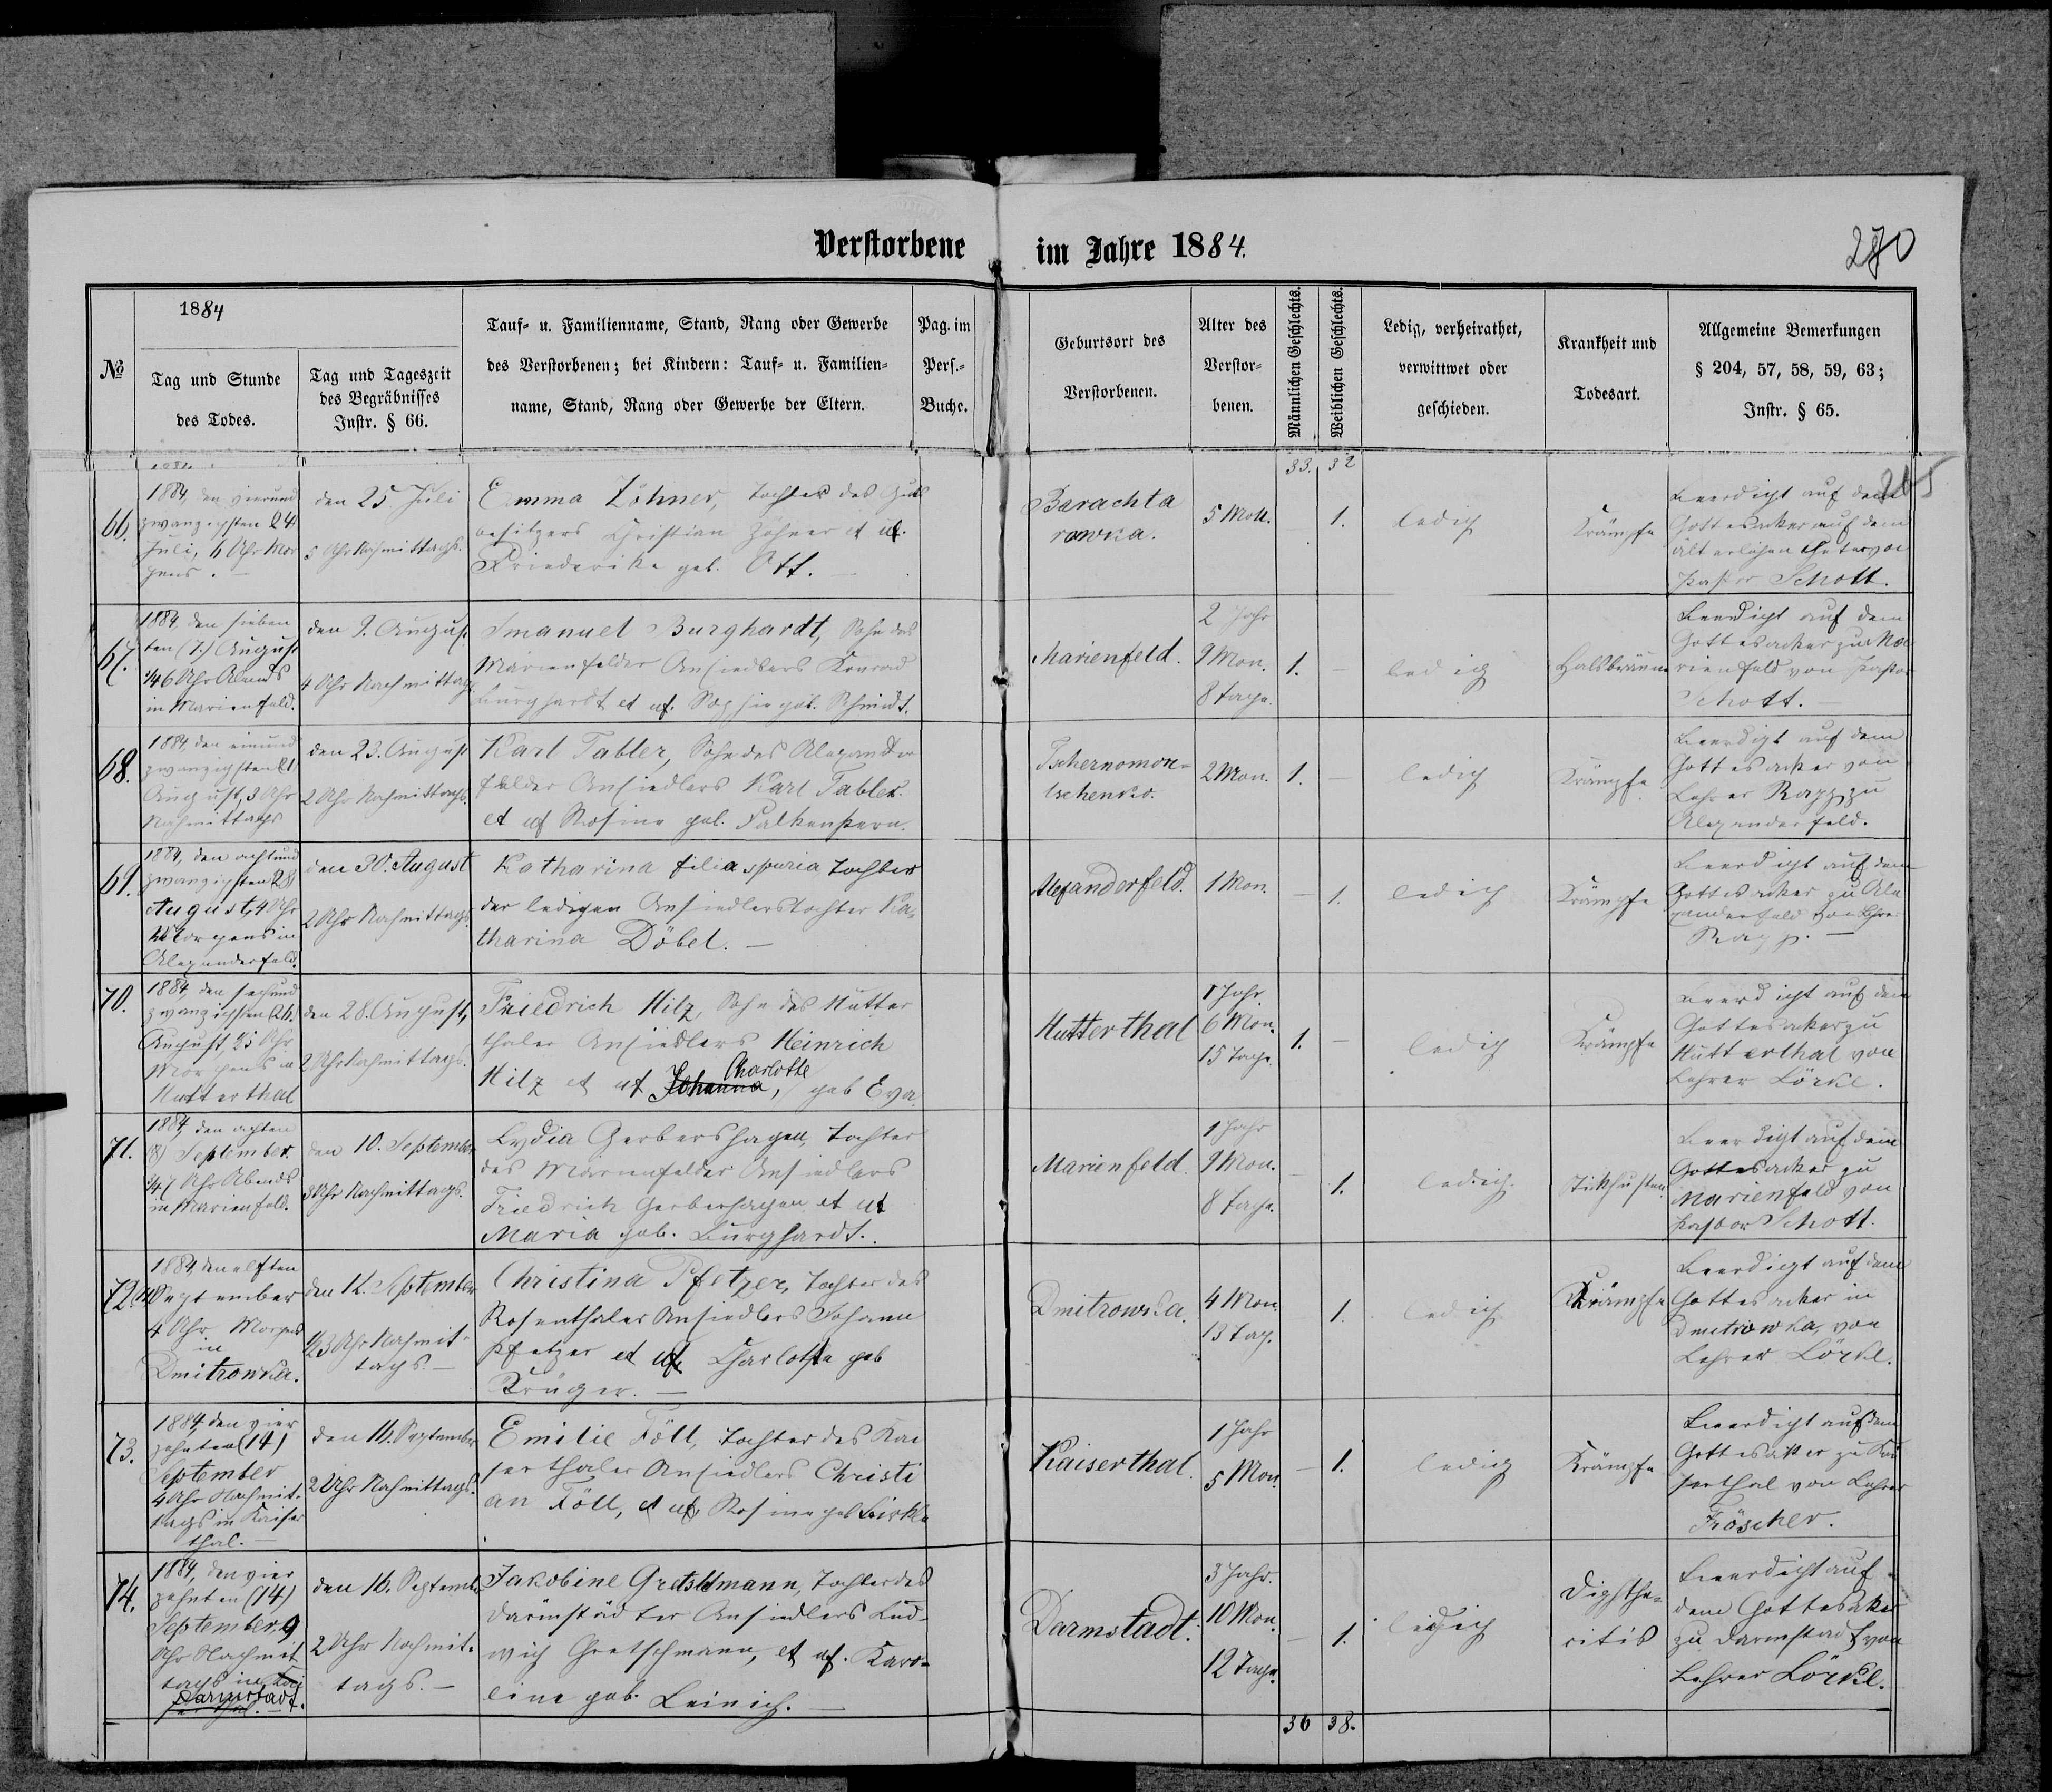 Verstorbene im Jahre 1884.
270
1884
№
Tag und Stunde
des Todes.
Tag und Tageszeit
des Begräbnisses
Instr. § 66.
Tauf- u. Familienname, Stand, Rang oder Gewerbe
des Verstorbenen; bei Kindern: Tauf- u. Familien-
name, Stand, Rang oder Gewerbe der Eltern.
Pag. im
Pers.-
Buche.
Geburtsort des
Verstorbenen.
Alter des
Verstor-
benen.
Männlichen Geschlechts.
Weiblichen Geschlechts.
Ledig, verheirathet,
verwittwet oder
geschieden.
Krankheit und
Todesart.
Allgemeine Bemerkungen
§ 204, 57, 58, 59, 63;
Instr. § 65.
33. 32
265
66.
1884, den vierund
zwanzigsten 24
Juli, 6 Uhr Mor
gens. —
den 25 Juli
5 Uhr Nachmittags.
Emma Zöhner, Tochter des Guts
besitzers Christian Zöhner et ux.
Friederike geb. Ott. —
Barachta
rowka.
5 Mon.
1.
ledig
Krämpfe
Beerdigt auf dem
Gottesacker auf dem
älterlichen Gute von
Pastor Schott.
67.
1884, den sieben
ten (7.) August
1/46 Uhr Abends
in Marienfeld.
den 9. August
4 Uhr Nachmittags
Imanuel Burghardt, Sohn des
Marienfelder Ansiedlers Konrad
Burghardt et ux. Sophie geb. Schmidt.
Marienfeld.
2 Jahr
9 Mon.
8 Tage.
1. —
ledig
Halsbräune
Beerdigt auf dem
Gottesacker zu Ma
rienfeld von Pastor
Schott. —
68.
1884, den einund
zwanzigsten 21
August, 3 Uhr
Nachmittags
den 23. August
2 Uhr Nachmittags.
Karl Tabler, Sohn des Alexander
felder Ansiedlers Karl Tabler.
et ux Rosine geb. Falkenstern.
Tschernomor-
tschenko.
2 Mon.
1. —
ledig
Krämpfe
Beerdigt auf dem
Gottesacker von
Lehrer Rapp zu
Alexanderfeld.
69.
1884, den achtund
zwanzigsten 28
August, 4 Uhr
Morgens in
Alexanderfeld.
den 30. August
2 Uhr Nachmittags.
Katharina filia spuria Tochter
der ledigen Ansiedlerstochter Ka-
tharina Döbel. —
Alexanderfeld.
1 Mon.
— 1.
ledig
Krämpfe
Beerdigt auf dem
Gottesacker zu Ale
xanderfeld von Lehrer
Rapp. —
70.
1884, den sechsund
zwanzigsten (26.)
August, 25 Uhr
Morgens in
Hutterthal
den 28. August,
2 Uhr Nachmittags.
Friedrich Hilz, Sohn des Hutter
thaler Ansiedlers Heinrich
Charlotte
Hilz et ux Johanna, geb Eva.
Hutterthal
1 Jahr
6 Mon.
15 Tage.
1. —
ledig
Krämpfe
Beerdigt auf dem
Gottesacker zu
Hutterthal von
Lehrer Lörke.
71.
1884, den achten
(8) September.
1/47 Uhr Abends
in Marienfeld.
den 10. September
3 Uhr Nachmittags.
Lydia Gerbershagen, Tochter
des Marienfelder Ansiedlers
Friedrich Gerbershagen et ux
Maria geb. Burghardt.
Marienfeld.
1 Jahr
9 Mon.
8 Tage.
— 1.
ledig.
Stickhusten.
Beerdigt auf dem
Gottesacker zu
Marienfeld von
Pastor Schott.
72.
1884, den elften
11 September
4 Uhr Morgens
in
Dmitrowka.
den 12. September
1/23 Uhr Nachmit-
tags. —
Christina Pfetzer, Tochter des
Rosenthaler Ansiedlers Johann
Pfetzer et ux Charlotte geb
Krüger. —
Dmitrowka.
4 Mon.
13 Tag.
1.
ledig
Krämpfe
Beerdigt auf dem
Gottesacker in
Dmitrowka, von
Lehrer Lörke.
73.
1884, den vier
zehnten (14)
September
4 Uhr Nachmit-
tags in Kaiser
thal. —
den 16. September
2 Uhr Nachmittags.
Emilie Föll, Tochter des Kai
serthaler Ansiedlers Christi
an Föll, et ux Rosine geb
Kaiserthal.
1 Jahr
5 Mon.
— 1.
ledig
Krämpfe
Beerdigt auf dem
Gottesacker zu Kai
serthal von Lehrer
Fröscher.
74.
1884, den vier
zehnten (14)
September 9
Uhr Nachmit
tags in Kai
Darmstadt.
serthal. —
den 16. Septemb.
2 Uhr Nachmit-
tags. —
Jakobine Gretschmann, Tochter des
Darmstädter Ansiedlers Lud-
wig Gretschmann, et ux. Karo-
line geb. Leinich. —
Darmstadt.
3 Jahr.
10 Mon.
12 Tage.
— 1.
ledig
Diphthe-
ritis
Beerdigt auf
dem Gottesacker
zu Darmstadt von
Lehrer Lörke.
36 38.